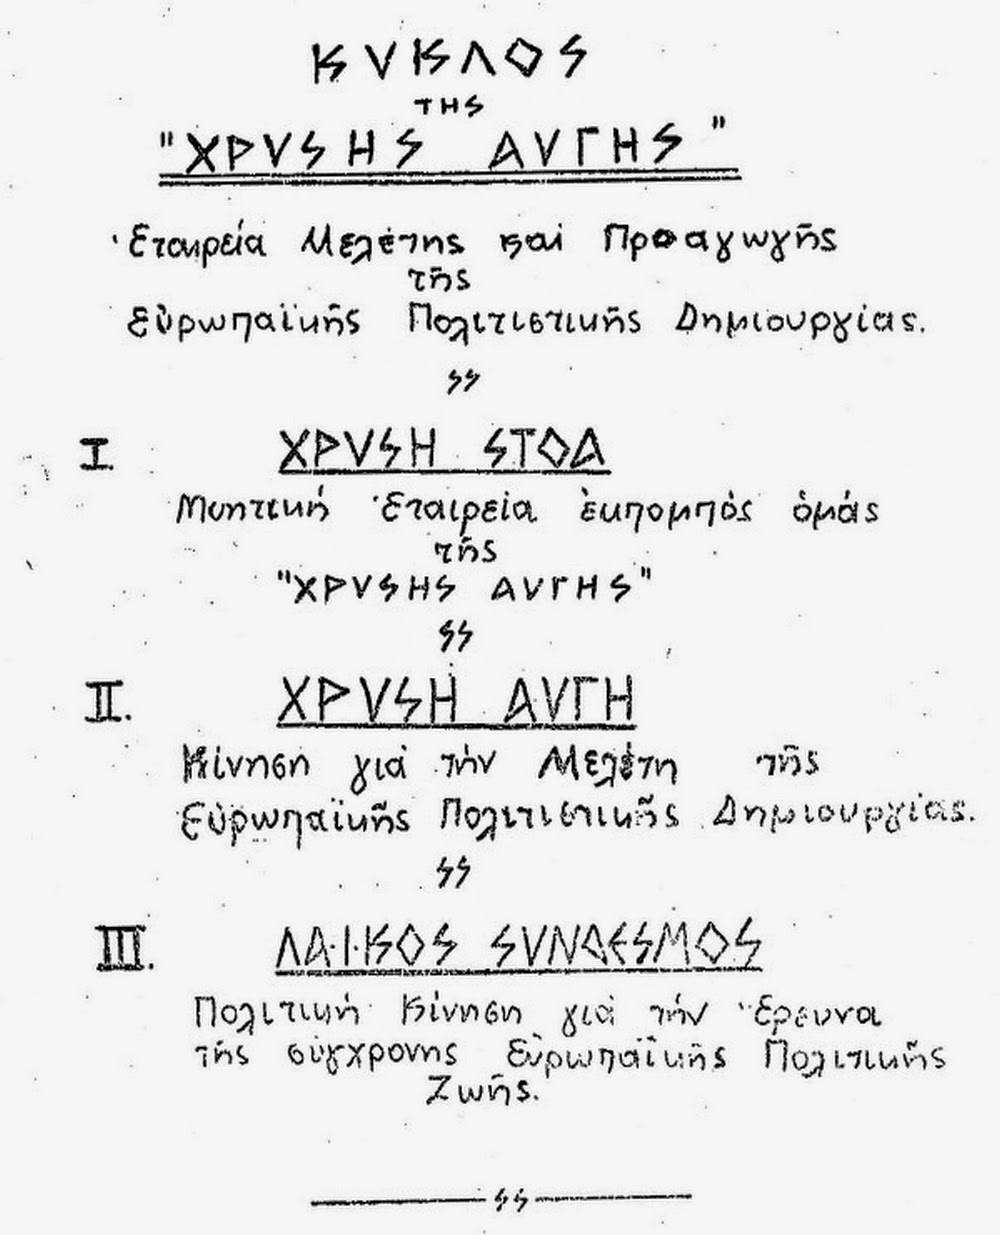 ΚΥΚΛΟΣ
ΤΗΣ
"ΧΡΥΣΗΣ ΑΥΓΗΣ"
Ἑταιρεία Μελέτης καί Προαγωγῆς
τῆς
Εὐρωπαϊκῆς Πολιτιστικῆς Δημιουργίας.
ϟϟ
I. ΧΡΥΣΗ ΣΤΟΑ
Μυητική Ἑταιρεία ἐκπομπὸς ὁμάς
τῆς
"ΧΡΥΣΗΣ ΑΥΓΗΣ"
ϟϟ
II. ΧΡΥΣΗ ΑΥΓΗ
Κίνηση γιά τήν Μελέτη τῆς
Εὐρωπαϊκῆς Πολιτιστικῆς Δημιουργίας.
ϟϟ
III. ΛΑ·Ι·ΚΟΣ ΣΥΝΔΕΣΜΟΣ
Πολιτική Κίνηση γιά τήν Ἔρευνα
τῆς σύγχρονης Εὐρωπαϊκῆς Πολιτικῆς
Ζωῆς.
ϟϟ